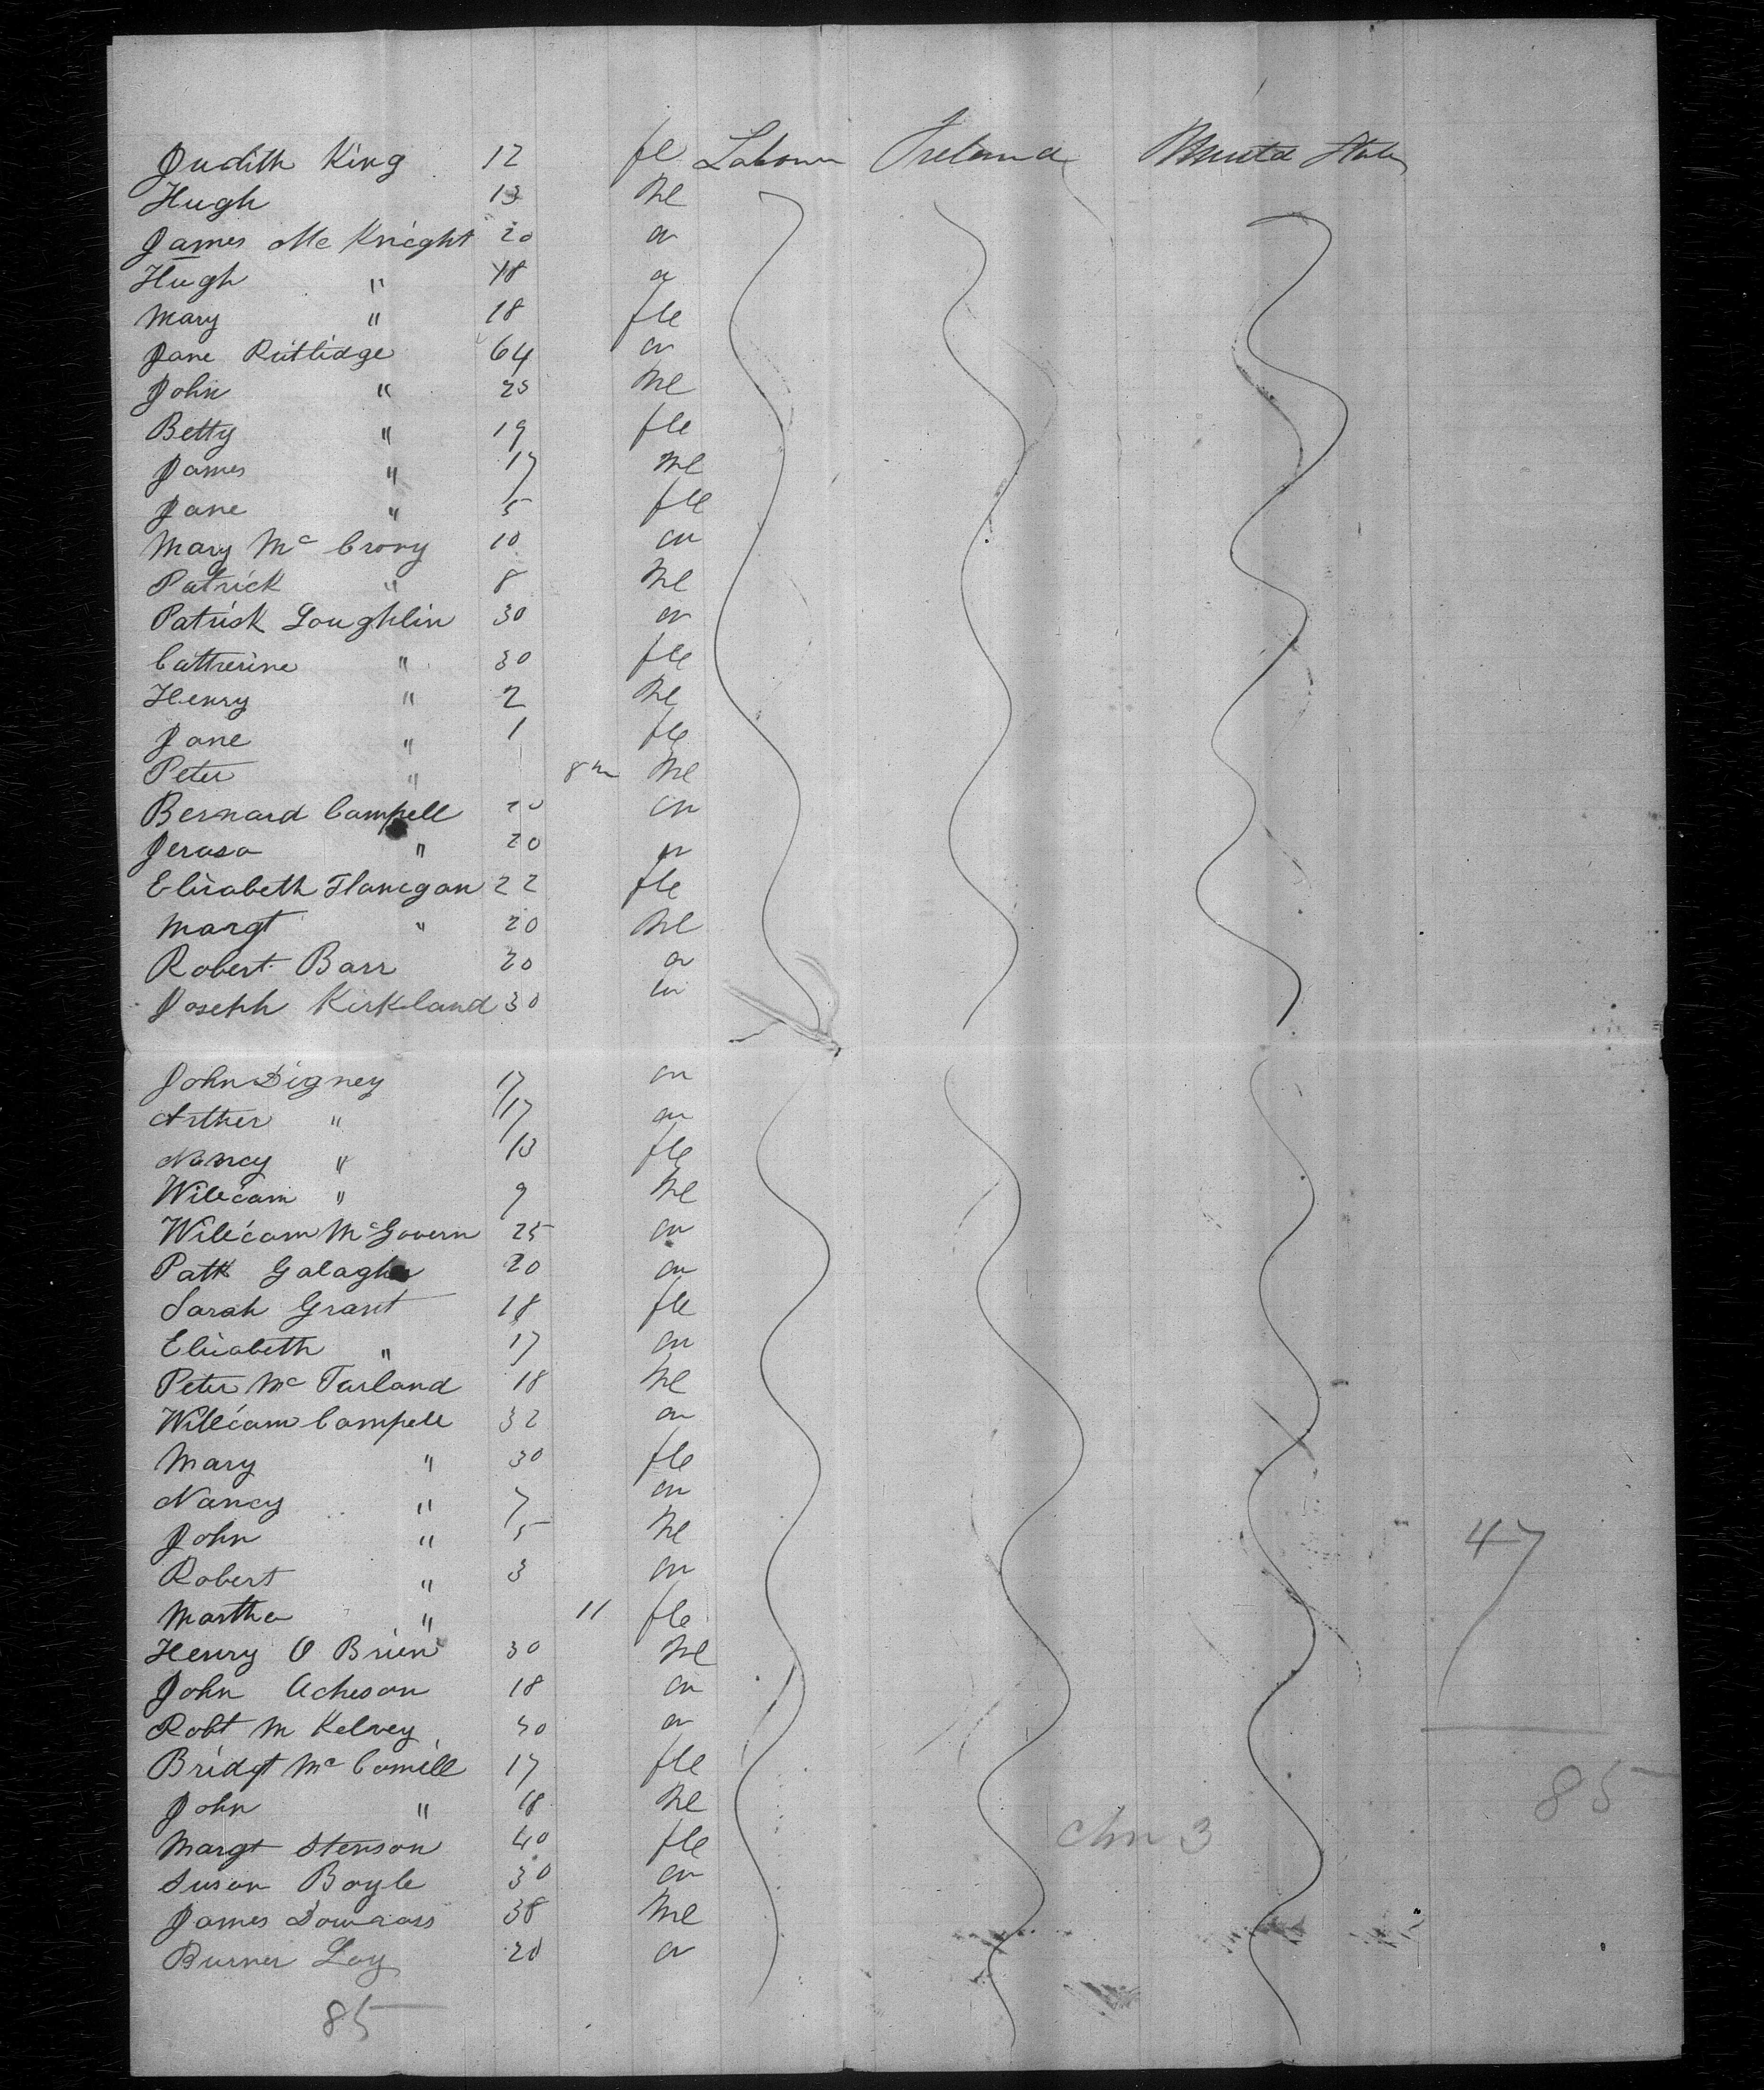 Judith King 12 fle Labour Ireland United States
Hugh 13 Ml
James Mc Knight 20 a
Hugh " 18 a
Mary " 18 fle
Jane Rutlidge 64 a
John " 25 Ml
Betty " 19 fle
James " 17 Ml
Jane " 5 fle
Mary Mc Crory 10 a
Patrick " 8 Ml
Patrick Loughlin 30 a
Catherine " 30 fle
Henry " 2 Ml
Jane " 1 fle
Peter " 8 m Ml
Bernard Campell 20 a
Jerasa " 20 a
Elisabeth Flanegan 22 fle
Margt " 20 Ml
Robert Barr 20 a
Joseph Kirkland 30 a
John Digney 17 a
Arther " 17 a
Nancy " 13 fle
William " 9 Ml
William McGovern 25 a
Patk Galagher 20 a
Sarah Grant 18 fle
Elisabeth " 17 a
Peter Mc Farland 18 Ml
William Campell 32 a
Mary " 30 fle
Nancy " 7 a
John " 5 Ml
Robert " 3 a
Martha " 11 fle
Henry O Brien 30 Ml
John Acheson 18 a
Robt M Kelvey 30 a
Bridgt Mc Comill 17 fle
John " 18 Ml
Margt Stenson 40 fle
Susan Boyle 30 a
James 38 Ml
Burner Loy 20 a
47
85
chn 3
85